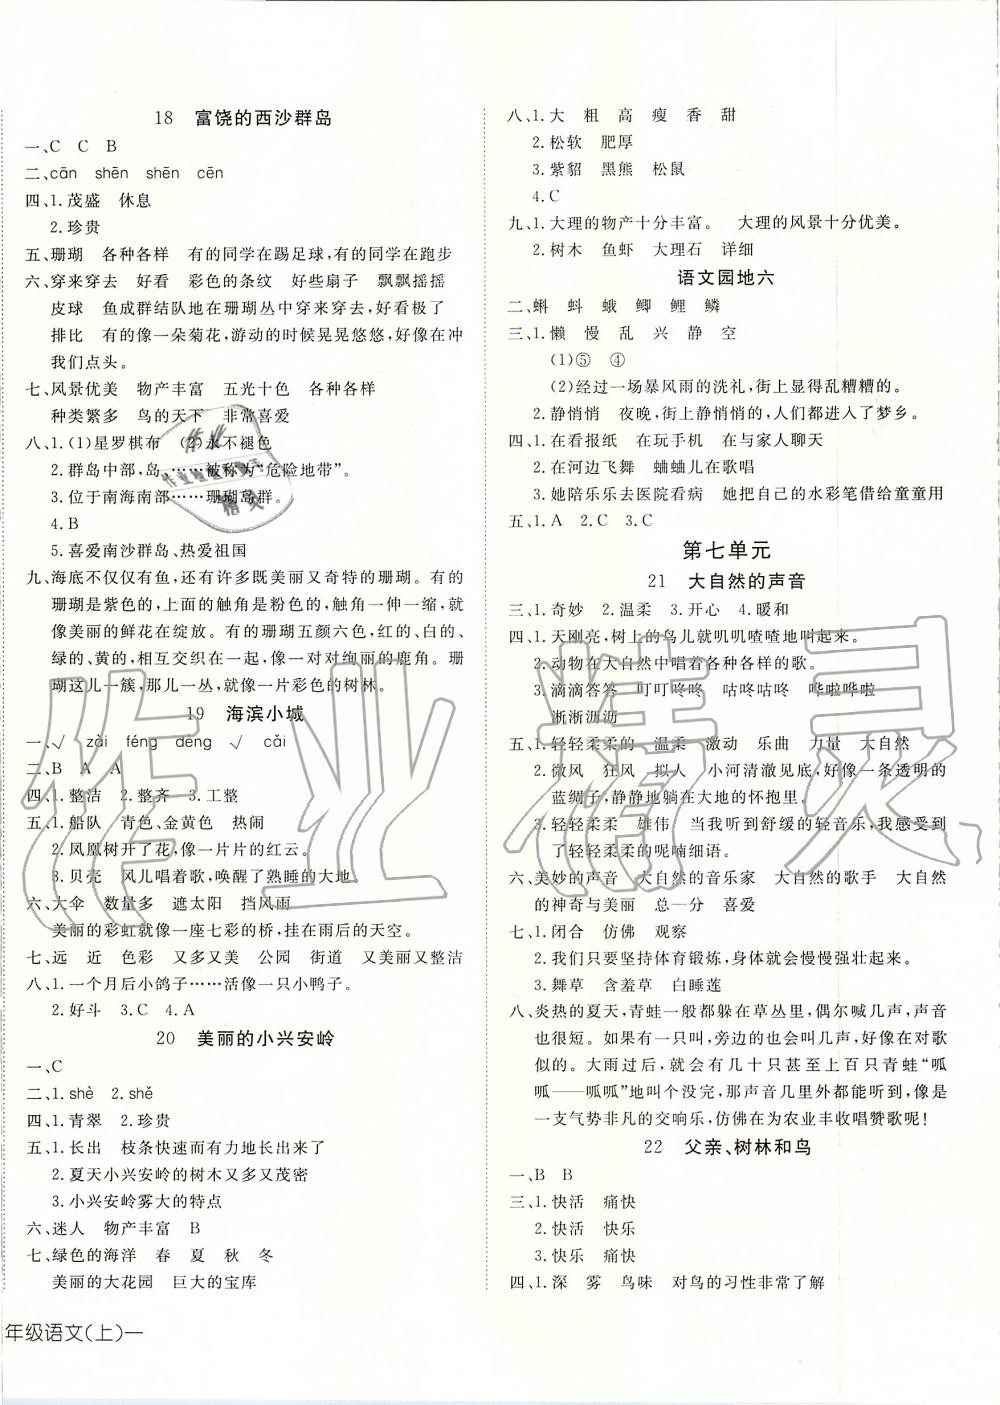 18 富饶的西沙群岛
一、C C B
二、cān shēn shēn cēn
四、1.茂盛 休息
2.珍贵
五、珊瑚 各种各样 有的同学在踢足球,有的同学在跑步
六、穿来穿去 好看 彩色的条纹 好些扇子 飘飘摇摇
皮球 鱼成群结队地在珊瑚丛中穿来穿去 好看极了
排比 有的像一朵菊花,游动的时候晃晃悠悠,好像在冲
我们点头。
七、风景优美 物产丰富 五光十色 各种各样
种类繁多 鸟的天下 非常喜爱
八、1.(1)星罗棋布 (2)永不褪色
2.群岛中部,岛……被称为“危险地带”。
3.位于南海南部……珊瑚岛群。
4.B
5.喜爱南沙群岛、热爱祖国
九、海底不仅仅有鱼,还有许多既美丽又奇特的珊瑚。有的
珊瑚是紫色的,上面的触角是粉色的,触角一伸一缩,就
像美丽的鲜花在绽放。有的珊瑚五颜六色,红的、白的、
绿的、黄的,相互交织在一起,像一对对绚丽的鹿角。珊
瑚这儿一簇,那儿一丛,就像一片彩色的树林。
19 海滨小城
一、√ zǎi féng deng √ cǎi
二、B A A
四、1.整洁 2.整齐 3.工整
五、1.船队 青色、金黄色 热闹
2.凤凰树开了花,像一片片的红云。
3.贝壳 风儿唱着歌,唤醒了熟睡的大地
六、大伞 数量多 遮太阳 挡风雨
美丽的彩虹就像一座七彩的桥,挂在雨后的天空。
七、远 近 色彩 又多又美 公园 街道 又美丽又整洁
八、1.一个月后小鸽子……活像一只小鸭子。
2.好斗 3.C 4.A
20 美丽的小兴安岭
一、C
二、1.shè 2.shě
四、1.青翠 2.珍贵
五、1.长出 枝条快速而有力地长出来了
2.夏天小兴安岭的树木又多又茂密
3.小兴安岭雾大的特点
六、迷人 物产丰富 B
七、绿色的海洋 春 夏 秋 冬
美丽的大花园 巨大的宝库
年级语文(上)一
八、1.大 粗 高 瘦 香 甜
2.松软 肥厚
3.紫貂 黑熊 松鼠
4.C
九、1.大理的物产十分丰富。 大理的风景十分优美。
2.树木 鱼虾 大理石 详细
语文园地六
二、蝌 蚪 蛾 鲫 鲤 鳞
三、1.懒 慢 乱 兴 静 空
(1)⑤ ④
(2)经过一场暴风雨的洗礼,街上是乱糟糟的。
2.静悄悄 夜晚,街上静悄悄的,人们都进入了梦乡。
四、1.在看报纸 在玩手机 在与家人聊天
2.在河边飞舞 蛐蛐儿在歌唱
3.她陪乐乐去医院看病 她把自己的水彩笔借给童童用
五、1.A 2.C 3.C
第七单元
21 大自然的声音
三、1.奇妙 2.温柔 3.开心 4.暖和
四、1.天刚亮,树上的鸟儿就叽叽喳喳地叫起来。
2.动物在大自然中唱着各种各样的歌。
3.滴滴答答 叮叮咚咚 咕咚咕咚 哗啦哗啦
淅淅沥沥
五、1.轻轻柔柔的 温柔 激动 乐曲 力量 大自然
2.微风 狂风 拟人 小河清澈见底,好像一条透明的
蓝绸子,静静地躺在大地的怀抱里。
3.轻轻柔柔 雄伟 当我听到舒缓的轻音乐,我感受到
了轻轻柔柔的呢喃细语。
六、美妙的声音 大自然的音乐家 大自然的歌手 大自然
的神奇与美丽 总—分 喜爱
七、1.闭合 仿佛 观察
2.我们只要坚持体育锻炼,身体就会慢慢强壮起来。
3.舞草 含羞草 白睡莲
八、炎热的夏天,青蛙一般都躲在草丛里,偶尔喊几声,声音
也很短。如果有一只叫,旁边的也会叫几声,好像在对歌
似的。大雨过后,就会有几十只甚至上百只青蛙“呱
呱——呱呱”地叫个没完,那声音几里外都能听到,像是
一支气势非凡的交响乐,仿佛在为农业丰收唱赞歌呢!
22 父亲、树林和鸟
一、B B
三、1.快活 痛快
2.快活 快乐
3.快乐 痛快
四、1.深 雾 鸟味 对鸟的习性非常了解